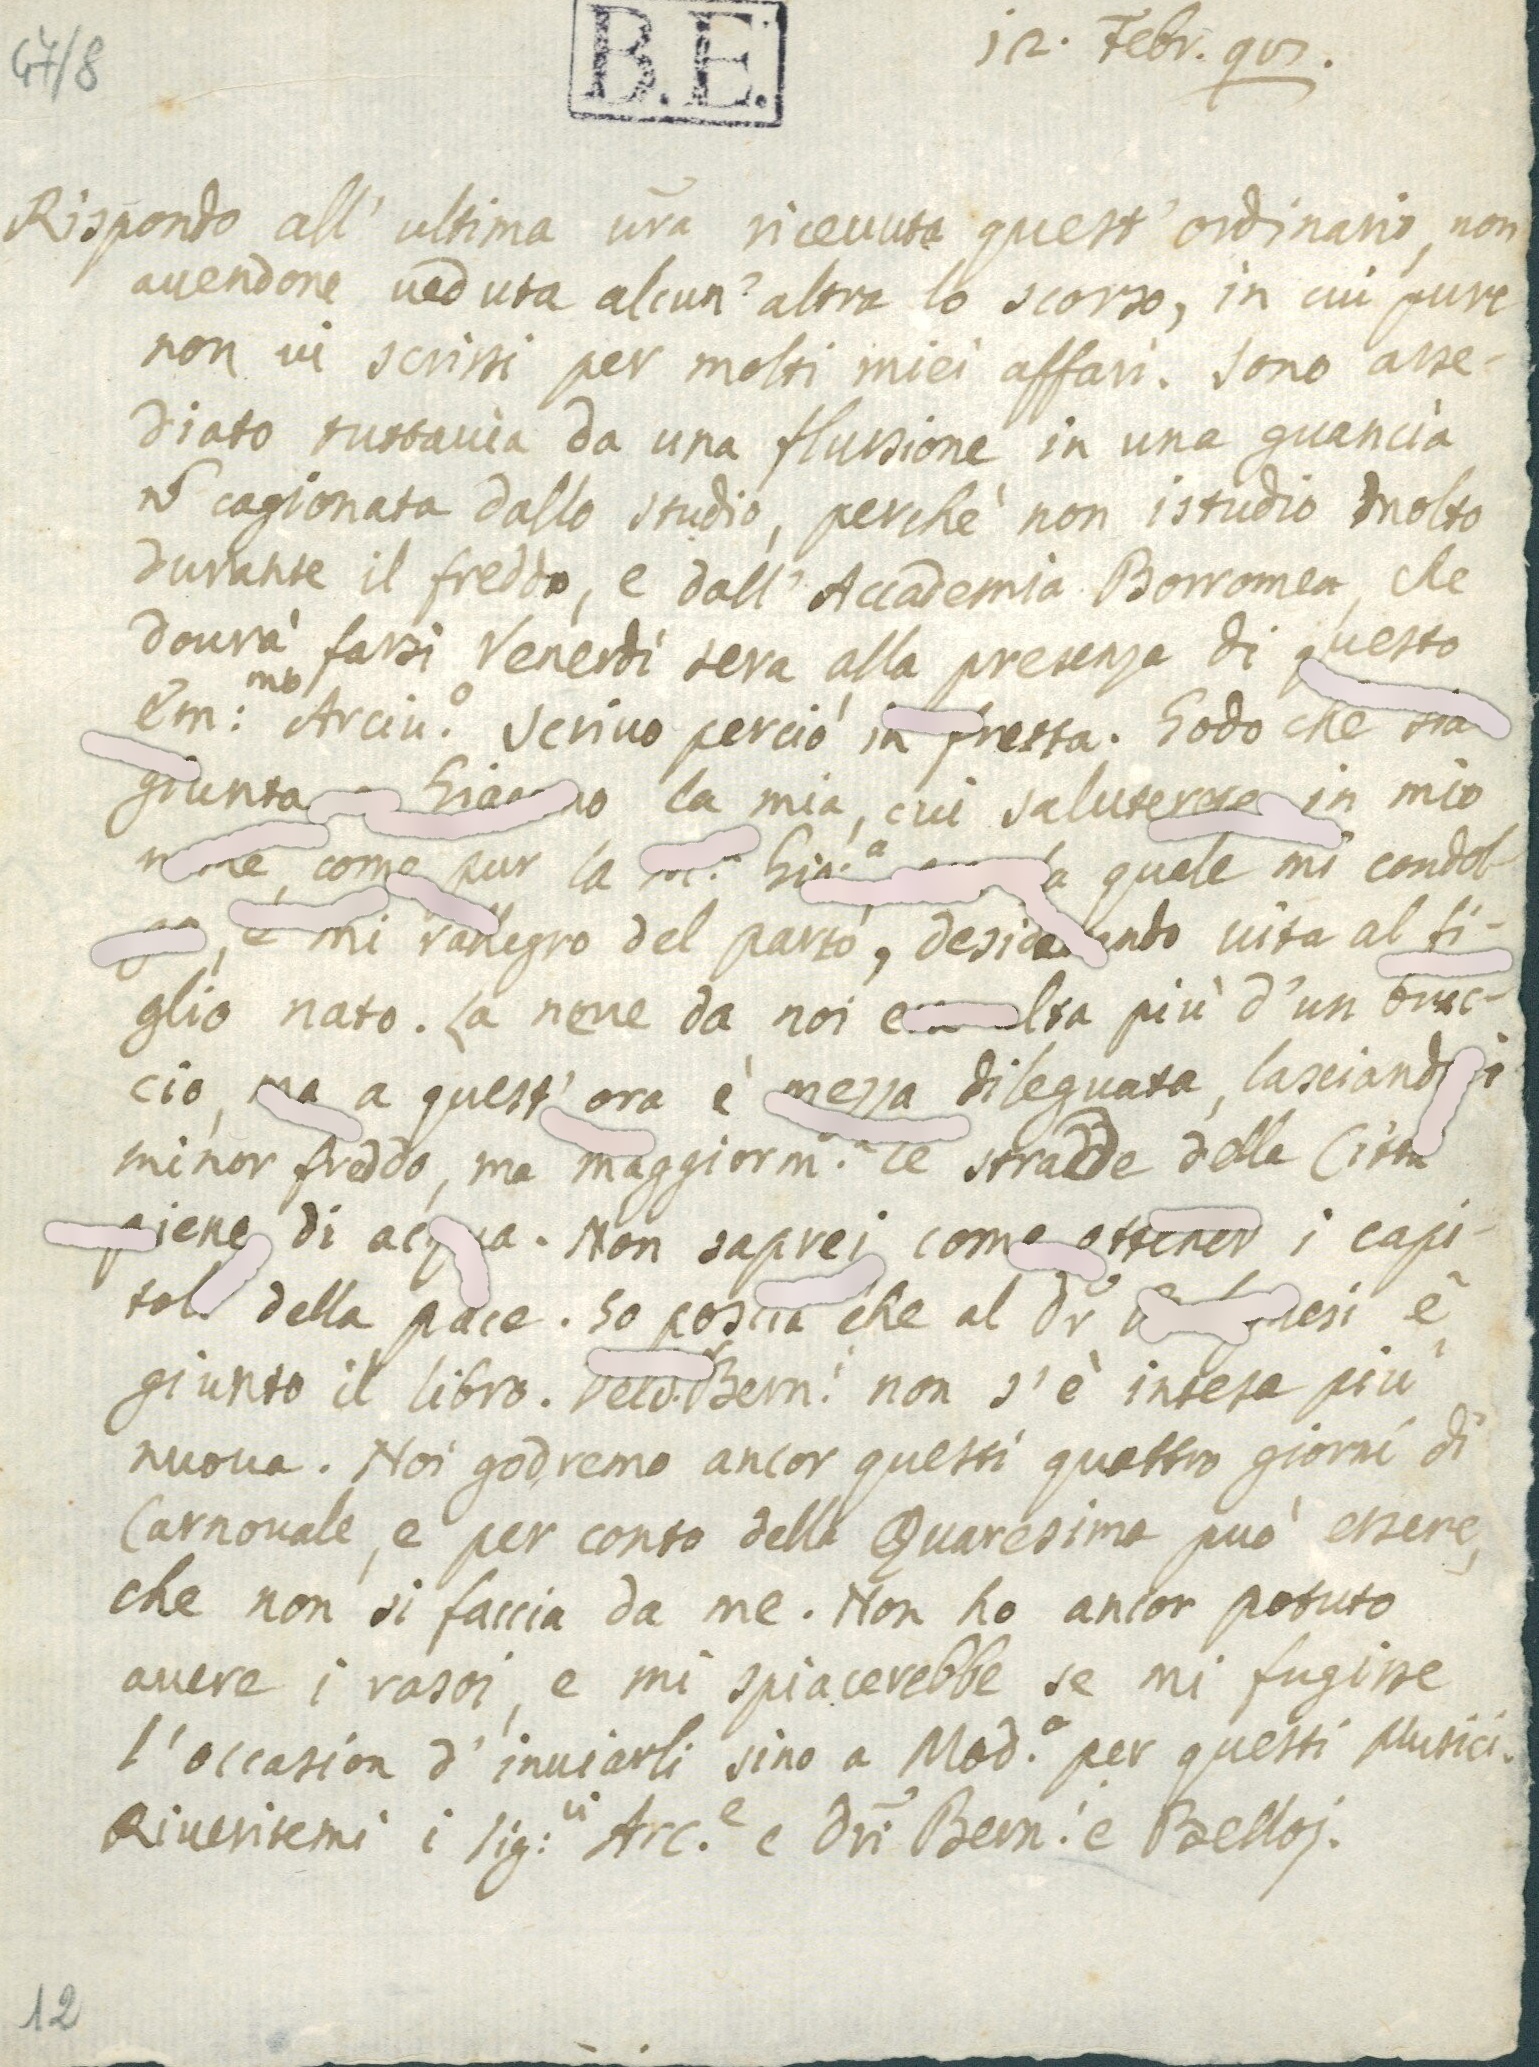 47/8
B.E.
12. Febr. 97.
Rispondo all' ultima vra ricevuta quest' ordinario, non
avendone veduta alcun' altra lo scorso, in cui pure
non vi scrissi per molti miei affari. Sono asse-
diato tuttavia da una flussione in una guancia
cagionata dallo studio, perchè non istudio molto
durante il freddo, e dall' Accademia Borromea, che
dovrà farsi Venerdí sera alla presenza di questo
Em:mo Arciv.o Scrivo perciò in fretta. Godo che sia
giunta la mia, cui saluterete in mio
come pur la quale mi condol-
e mi rallegro del parto, desiderando vita al fi-
glio nato. La neve da noi alta più d'un brac-
cio, ma a quest' ora è mezza dileguata, lasciandoci
minor freddo, ma maggiorm.e le stradde della Città
piene di acqua. Non saprei come ottener i capi-
toli della pace. So poscia che al Dr è
giunto il libro. Del Bern.i non s'è intesa più
nuova. Noi godremo ancor questi quattro giorni di
Carnovale, e per conto della Quaresima può essere,
che non si faccia da me. Non ho ancor potuto
avere i rasoi, e mi spiacerebbe se mi fugisse
l'occasion d' inviarli sino a Mod.a per questi Musici.
Riveritemi i Sig:ri Arc.e e Dri Bern.i e Belloj.
12